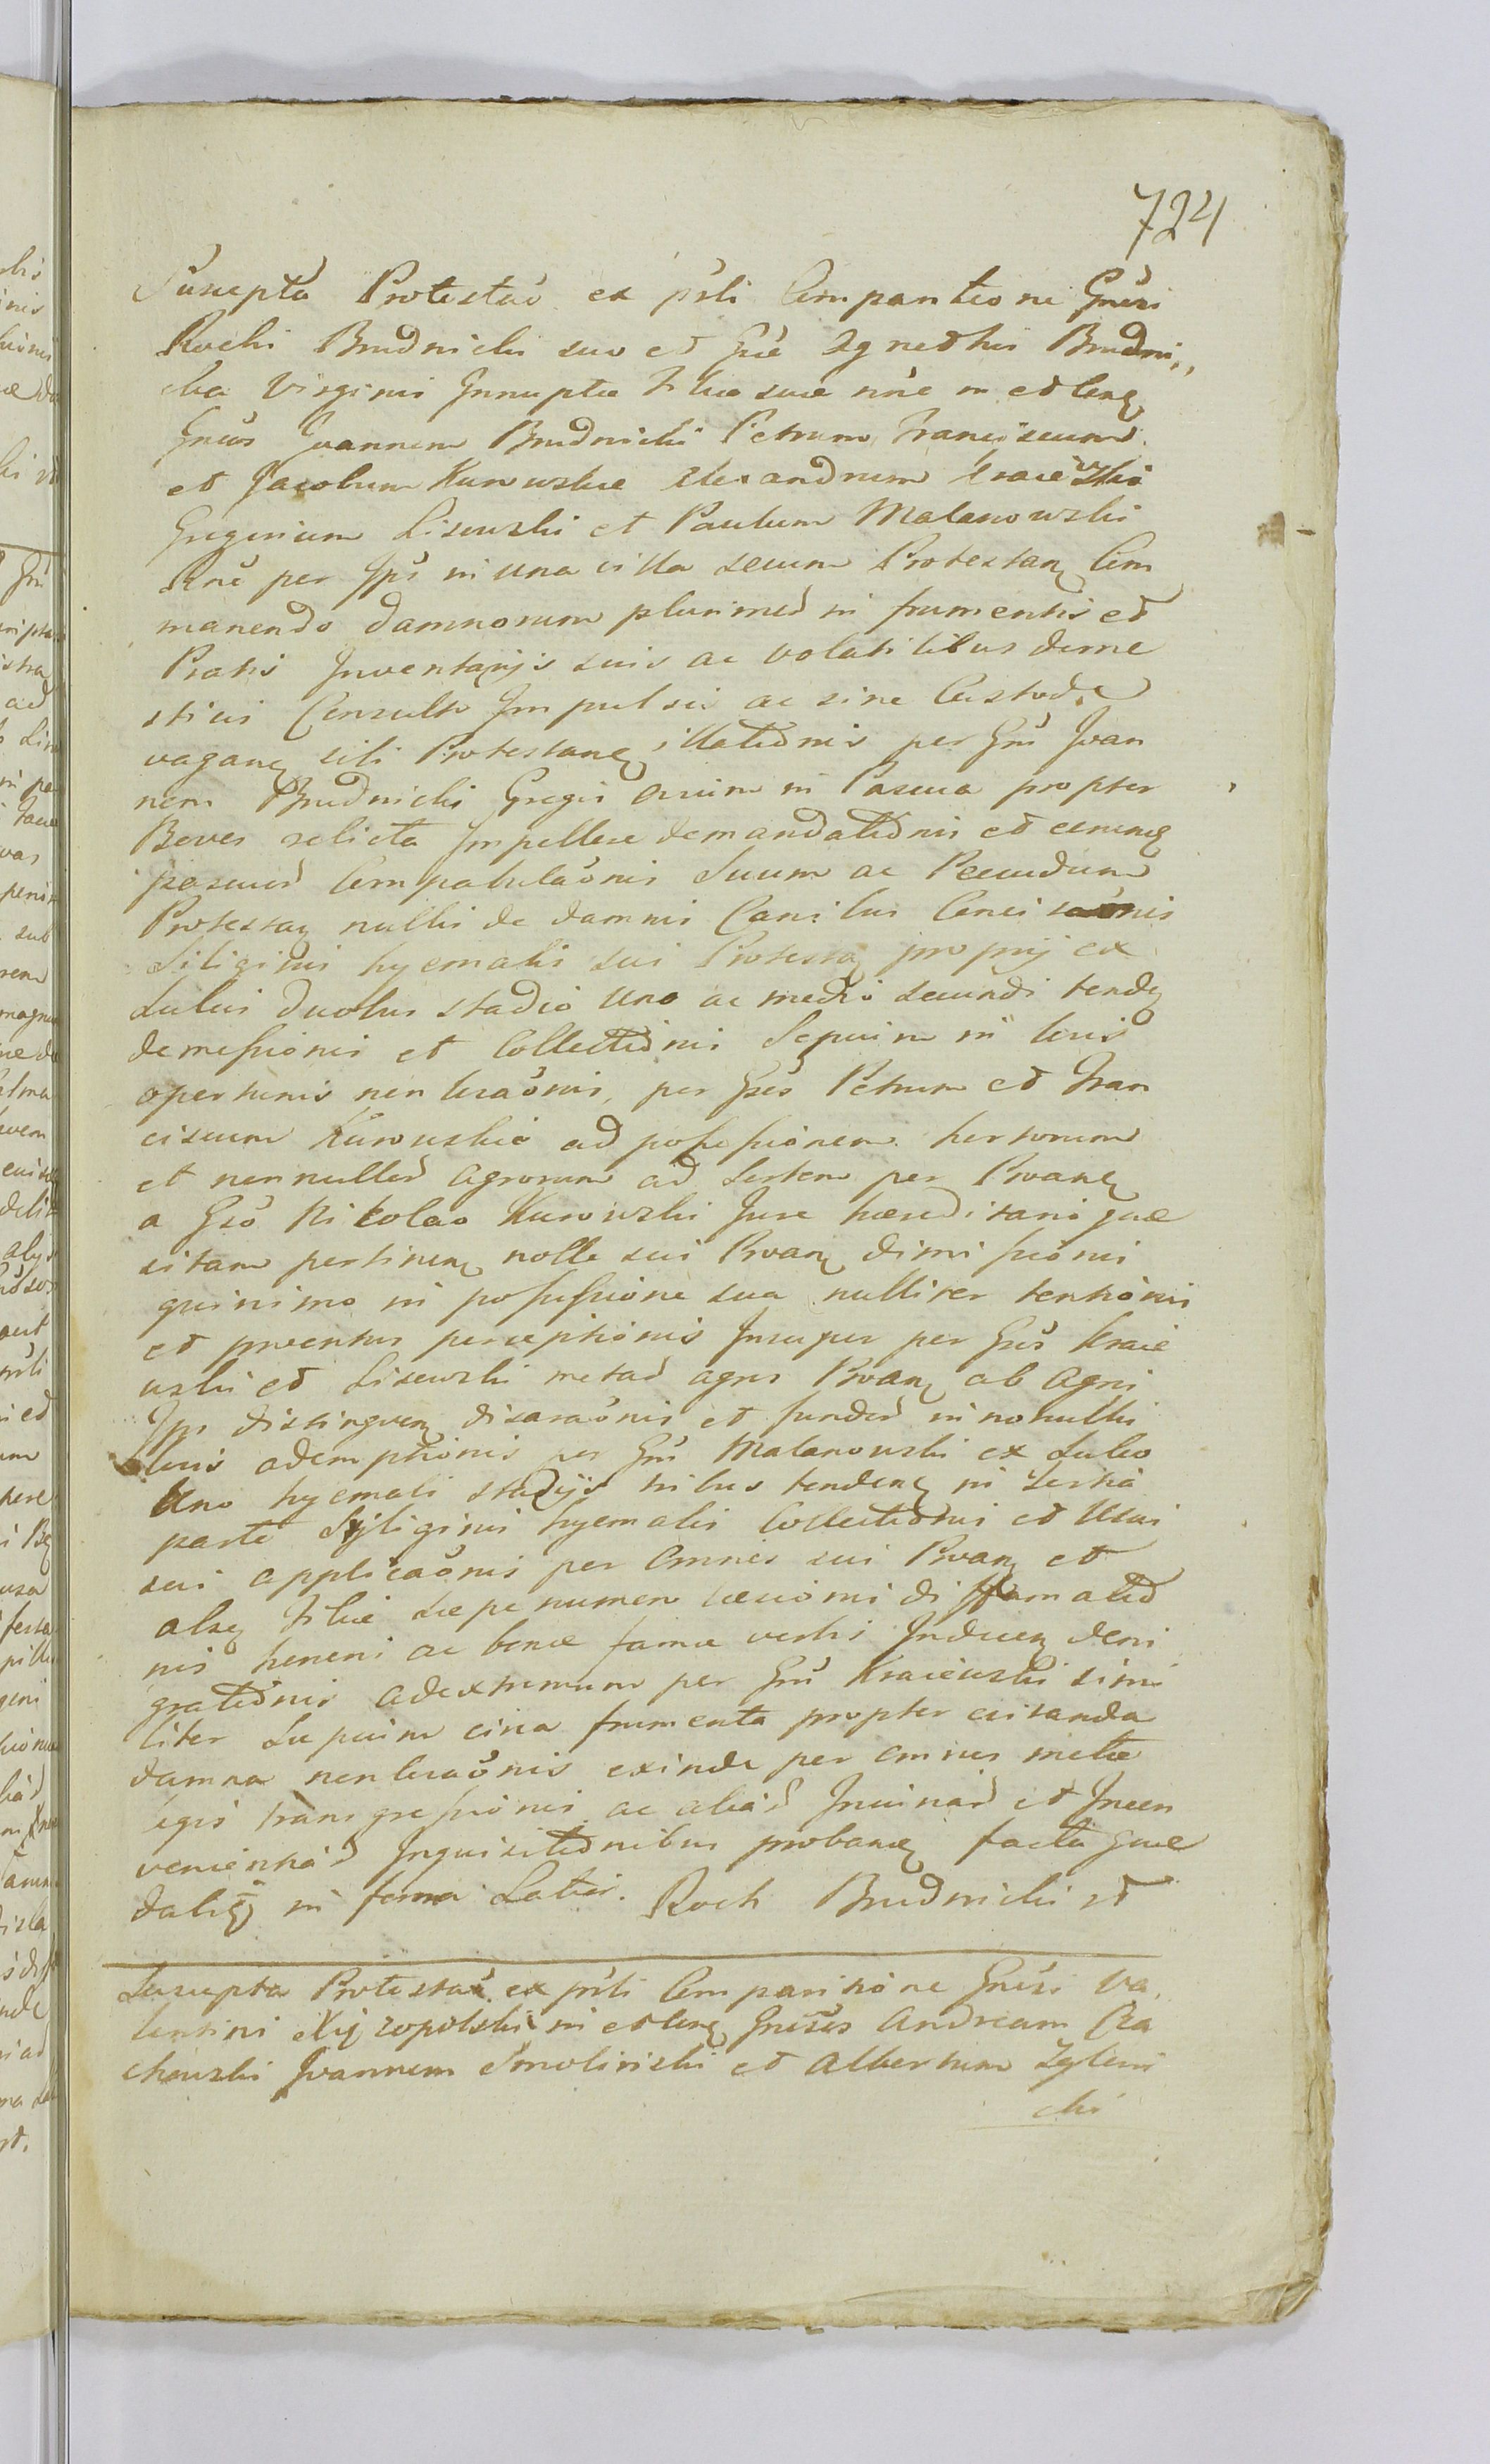 724
Suscepta Protestaõ ex prsti Comparitione Gnẽri
Rochi Brudnicki suo et Gñe Agnethis Brudni,,
cka Virginis Innuptæ Filiæ suæ nñe m ctt leng
Gñeos Joannem Brudnicki Petrum Franciscum
et Jacobum Kurowskie Alexandrum Kraiewski
Gregorium Lisewski et Paulum Malanowski
Rñe per Ips in una villa secum Protestanq Com
manendo damnorum plurimoꝝ in frumentis et
Pratis Inventarijs suis ac volatilibus dome
sticis Consulto Impulsis ac sine Custode
vaganq sibi Protestanq illationis per Gñ Joan
nem Brudnicki Gregis ovium in Pascua propter
Boves relicta Impellere demandationis et eorumq
pascuoꝝ Compabulaõnis Suum ac Pecudum
Protestaq nullis de damnis Canibus Concisaõnis
Siliginis hyemalis sui Protestaq proprij ex
Sulcis duobus stadio uno ac medio secundi tendeq
demessionis et Collectionis Sepium in locis
opertunis non locaõnis, per Gñs Petrum et Fran
ciscum Kurowskie ad possessionem hortorum
et nonnulloꝝ agrorum ad sortem per Proanq
a Gso Nikolao Kurowski Jure hæreditario quæ
sitam pertinenq nolle sui Proanq dimissionis
quinimo in possessione sua nulliter tentionis
et proventus perceptionis Insuper per Gñs Kraie
wski et Lisewski metas agros Proanq ab Agri
Ips distinguenq disaraõnis et fundoꝝ in nonullis
locis ademptionis per Gñ Malanowski ex Sulco
Uno hyemali stadijs tribus tendenq in tertia
parte Syliginis hyemalis Collectionis et Usui
sui applicaõnis per Omnes sui Proanq et
alseq Filiæ sæpe numero læsionis diffamatio
nis honoris ac bonæ famæ verbis Indecenq deni
grationis adextremum per Gñ Kraiewski simi
liter Sepium circa frumenta propter evitanda
damna nonlocaõnis exinde per omnes metæ
legis transgressionis ac aliaꝝ Iniuriaꝝ et Incon
venientiaꝝ Inquisitionibus probanq facta quæ
dabitq in forma Latiori. Roch Brudnicki st
Suscepta Protestaõ ex prsti Comparitione Gnẽri Va,
lentini Xięzopolski in ctt leng Gñesos Andream Cza
chowski Joannem Smolinski et Albertum Zyleni
cki